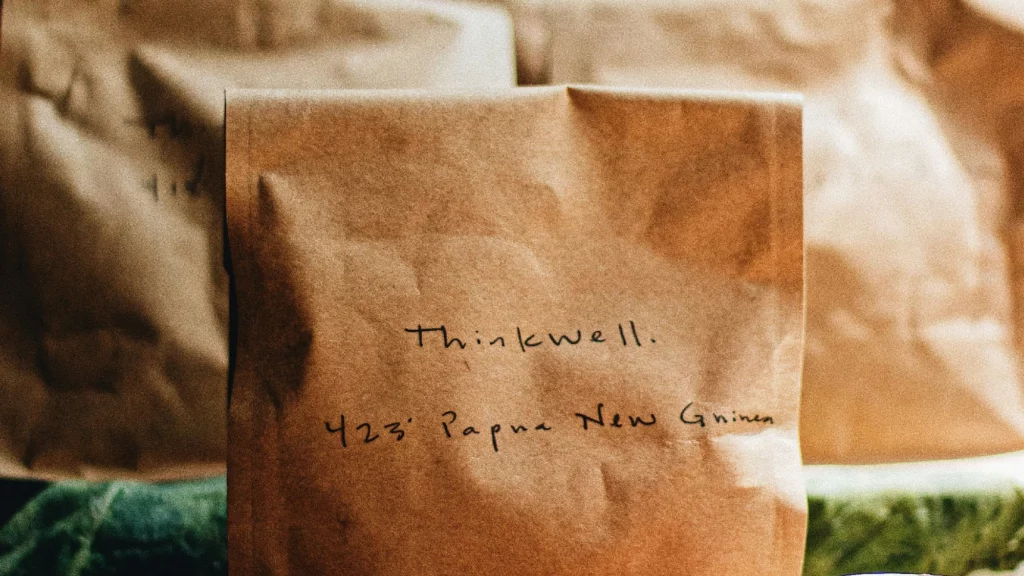 Thinkwell.
423' Papua New Guinea